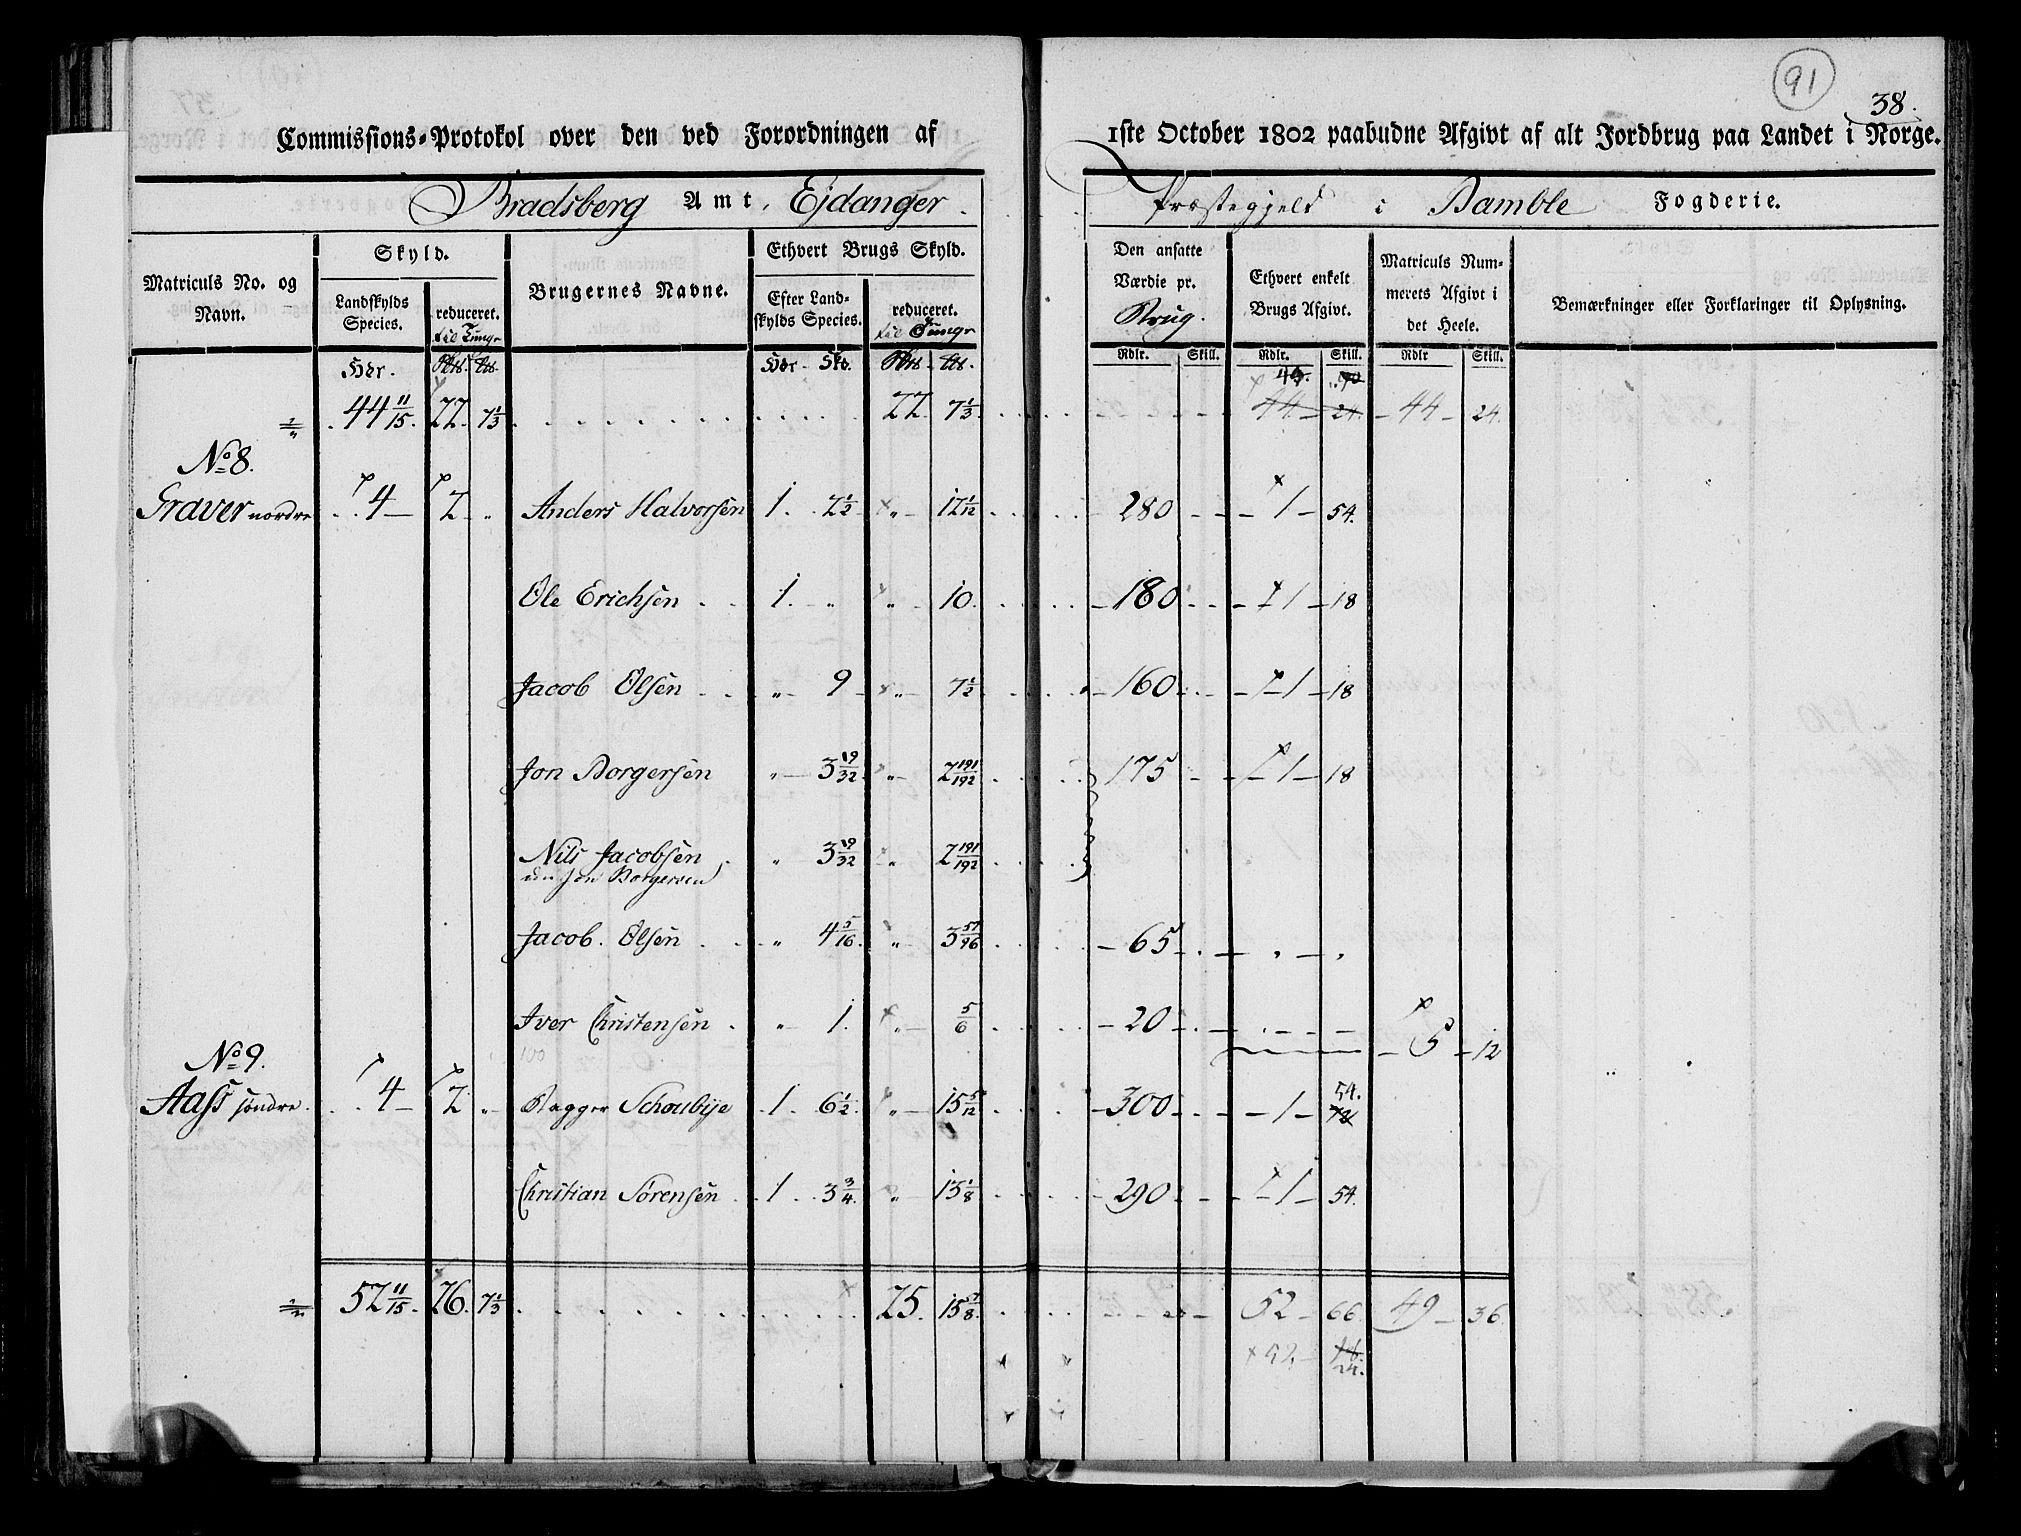 91
38.
Commissions-Protokol over den ved Forordningen af 1ste October 1802 paabudne Afgivt af alt Jordbrug paa Landet i Norge.
Bradsberg Amt, Ejdanger Præstegjeld i Bamble Fogderie.
Matriculs No. og Navn.
Skyld.
Landskylds Species.
reduceret. til Tunge
Brugernes Navne.
Ethvert Brugs Skyld.
Efter Landskylds Species.
reduceret. til Tunge
Den ansatte Værdie pr. Brug.
Ethvert enkelt Brugs Afgivt.
Matriculs Nummerets Afgivt i det Heele.
Bemærkninger eller Forklaringer til Oplysning.
Rdlr. Skill. Rdlr. Skill. Rdlr Skill.
44 11/15. 22. 7 1/3 22. 7 1/3 44 24. 44 24.
No 8.
Graver nordre 4 2 " Anders Halvorsen 1. 2 1/2 " 12 1/12 280 1 54.
Ole Erichsen 1. " " 10. 180 1 18
Jacob Olsen " 9 " 7 1/2 160 1 18
Jon Borgersen " 3 19/32 " 2 191/192 175 1 18
Nils Jacobsen " 3 19/32 " 2 191/192
nu Jon Borgersen
Jacob. Olsen " 4 5/16 " 3 57/96 65
Iver Christensen " 1. " 5/6 20
5 12
No 9.
Aass söndre 4 2 " Ragger Schoubye 1. 6 1/2 " 15 5/12 300 1 54. 72
Christian Sörensen 1 3 3/4 " 13 1/8 290 1 54.
52 11/15. 26. 7 1/3 25. 52 66. 49 36.
52 24.